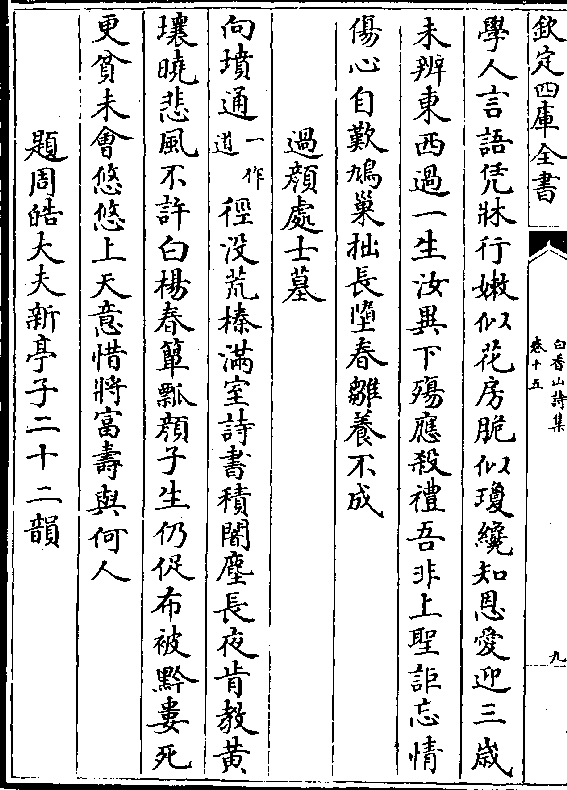 欽定四庫全書
白香山詩集
卷十五
九
學人言語凭牀行嫩似花房脆似瓊纔知恩愛迎三歲
未辨東西過一生汝異下殤應殺禮吾非上聖詎忘情
傷心自歎鳩巢拙長墮春雛養不成
過顔處士墓
向墳通一作道徑没荒榛滿室詩書積闇塵長夜肯教黄
壤曉悲風不許白楊春簞瓢顔子生仍促布被黔婁死
更貧未會悠悠上天意惜將富壽與何人
題周皓大夫新亭子二十二韻